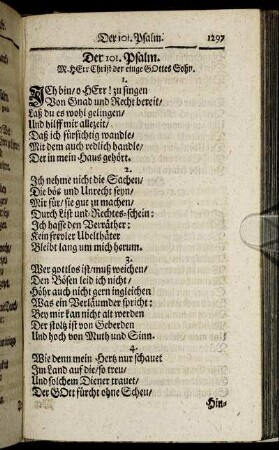 Der 101. Psalm. 1297
Der 101. Psalm.
M. HErr Christ der einge GOttes Sohn.
1.
ICh bin/ o HErr! zu singen
Von Gnad und Recht bereit/
Laß du es wohl gelingen/
Und hilff mir allezeit/
Daß ich fürsichtig wandle/
Mit dem auch redlich handle/
Der in mein Haus gehört.
2.
Ich nehme nicht die Sachen/
Die bös und Unrecht seyn/
Mir für/ sie gut zu machen/
Durch List und Rechtes-schein:
Ich hasse den Verräther:
Kein frevler Ubelthäter
Bleibt lang um mich herum.
3.
Wer gottlos ist/ muß weichen/
Den Bösen leid ich nicht/
Höhr auch nicht gern ingleichen
Was ein Verläumder spricht:
Bey mir kan nicht alt werden
Der stoltz ist von Geberden
Und hoch von Muth und Sinn.
4.
Wie denn mein Hertz nur schauet
Im Land auf die/ so treu/
Und solchem Diener trauet/
Der GOtt fürcht ohne Scheu/
Hin-